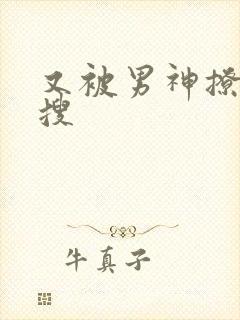 又被男神撩
搜
牛真子